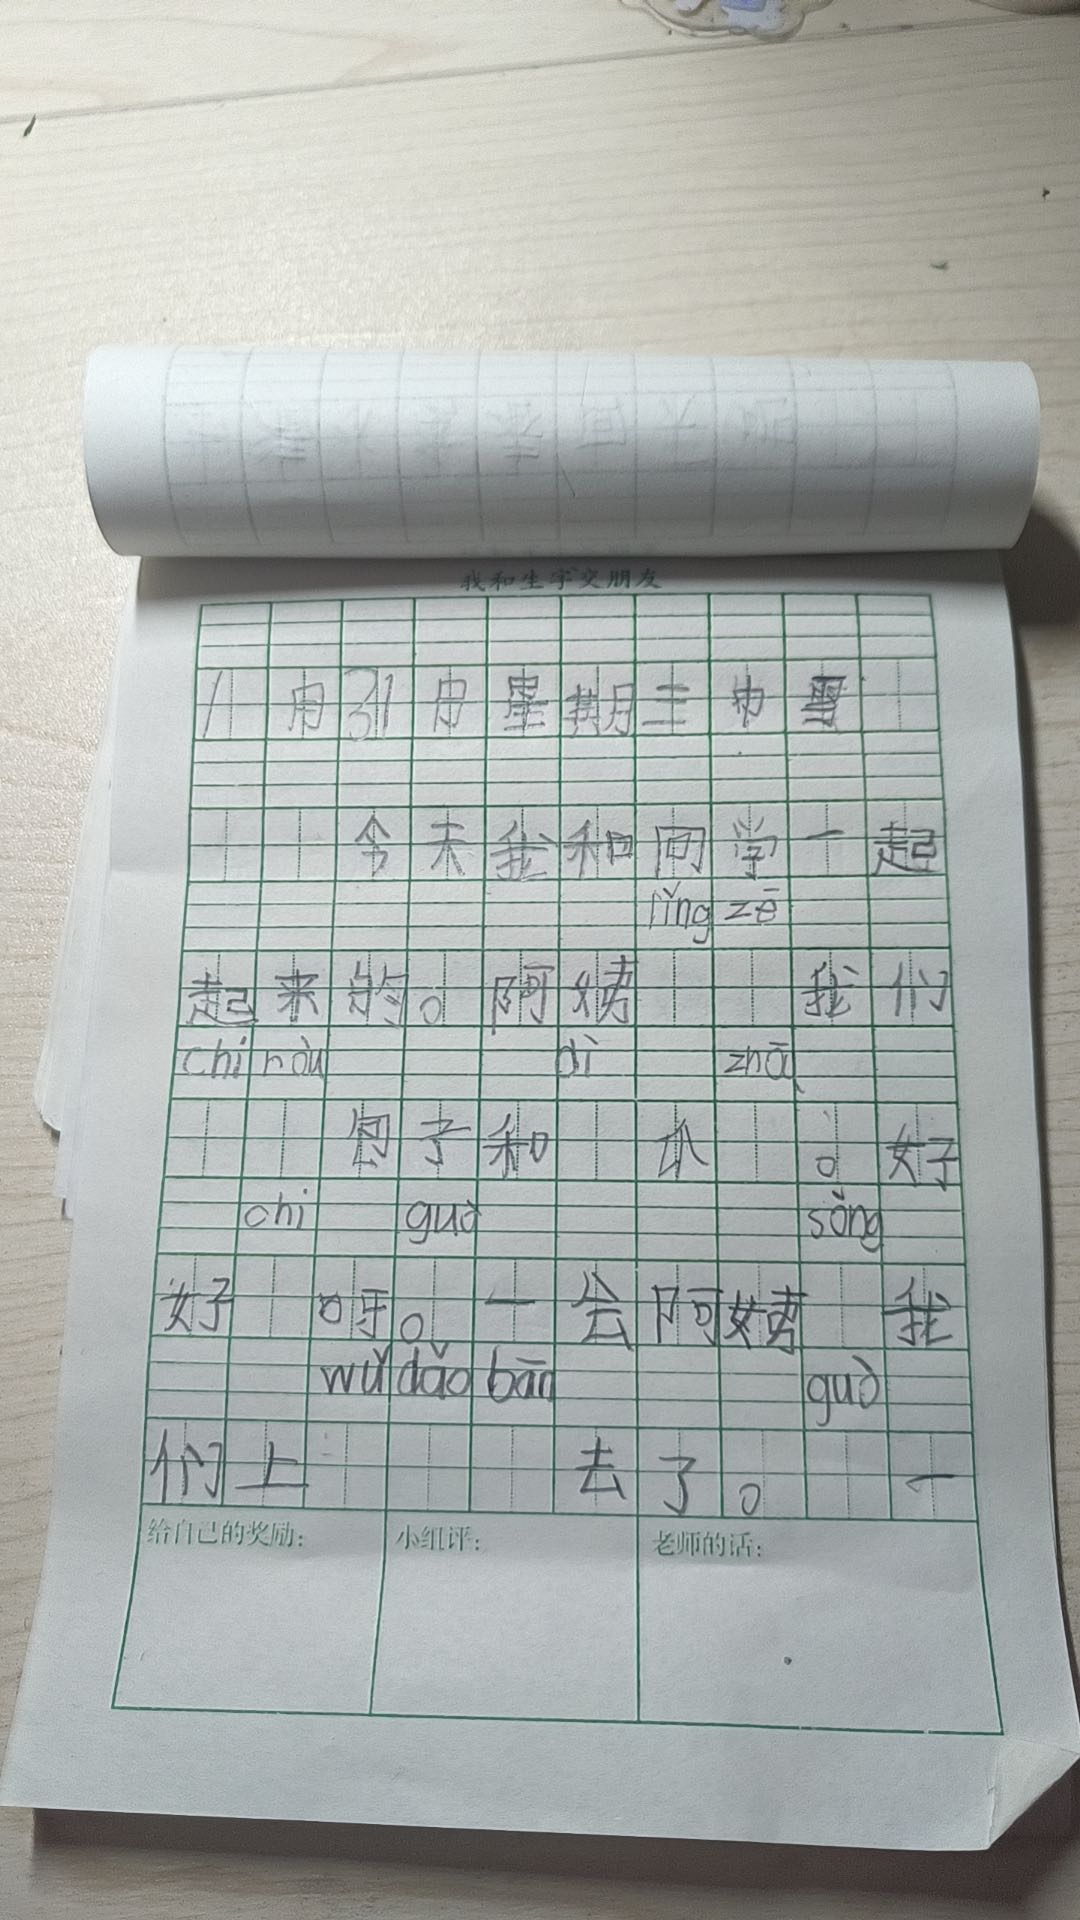 我和生字交朋友
1月31日星期三中雪
今天我和同学一起
lǐng zē
起来的。阿姨 我们
chi ròu dì zhā
包子和 瓜 。好
chi guò sǒng
好 呀。一会阿姨 我
wǔ dǎo bān guò
们上 去了。 一
给自己的奖励: 小组评: 老师的话: